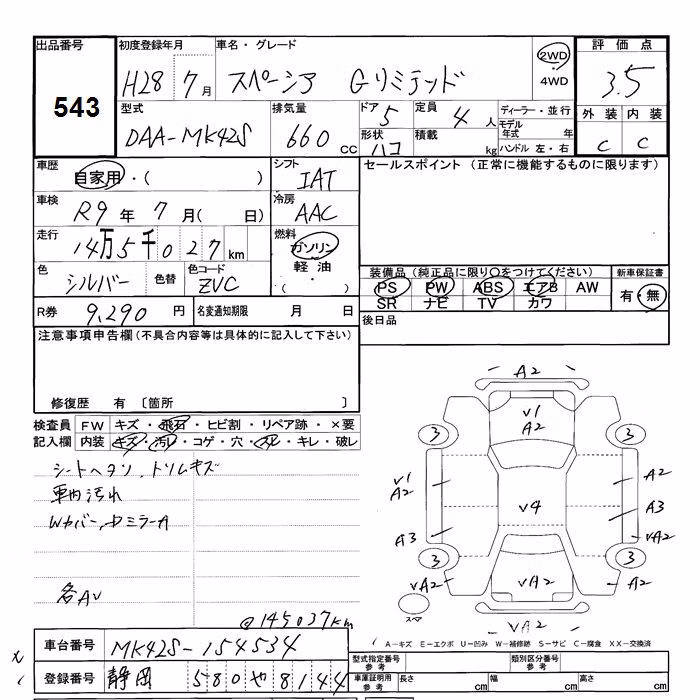 出品番号 初度登録年月 車名・グレード 評価点
543 H28 7月 スペーシア Gリミテッド 2WD ・ 4WD 3.5
型式 排気量 ドア 5 定員 4人 ディーラー・並行 外装 内装
DAA-MK42S 660cc 形状 ハコ 積載 kg モデル年式 年 ハンドル 左・右 C C
車歴 自家用・( ) シフト IAT セールスポイント (正常に機能するものに限ります)
車検 R9年 7月( 日) 冷房 AAC
走行 14万5千027km 燃料 ガソリン 軽油 ( ・ )
色 シルバー 色替 色コード ZVC 装備品(純正品に限り○をつけてください) 新車保証書
PS PW ABS エアB AW 有・無
SR ナビ TV カワ
R券 9,290円 名変通知期限 月 日 後日品
注意事項申告欄(不具合内容等は具体的に記入して下さい)
修復歴 有 〔箇所 〕
検査員 FW キズ・飛石・ヒビ割・リペア跡・×要
記入欄 内装 キズ・汚レ・コゲ・穴・スレ・キレ・破レ
シートヘタリ、トリムキズ
車内汚れ
Wカバー、ドミラーA
各AV
@145027km
A2
V1
A2
3 3
V1 A2 A2
V4 A3
A3 VA2
3 3
VA2 VA2 A2
スマ VA2
A－キズ E－エクボ U－凹み W－補修跡 S－サビ C－腐食 XX－交換済
車台番号 MK42S-154534 型式指定番号 参考 類別区分番号 参考
登録番号 静岡 580 や 8144 車庫証明用 参考 長さ cm 幅 cm 高さ cm